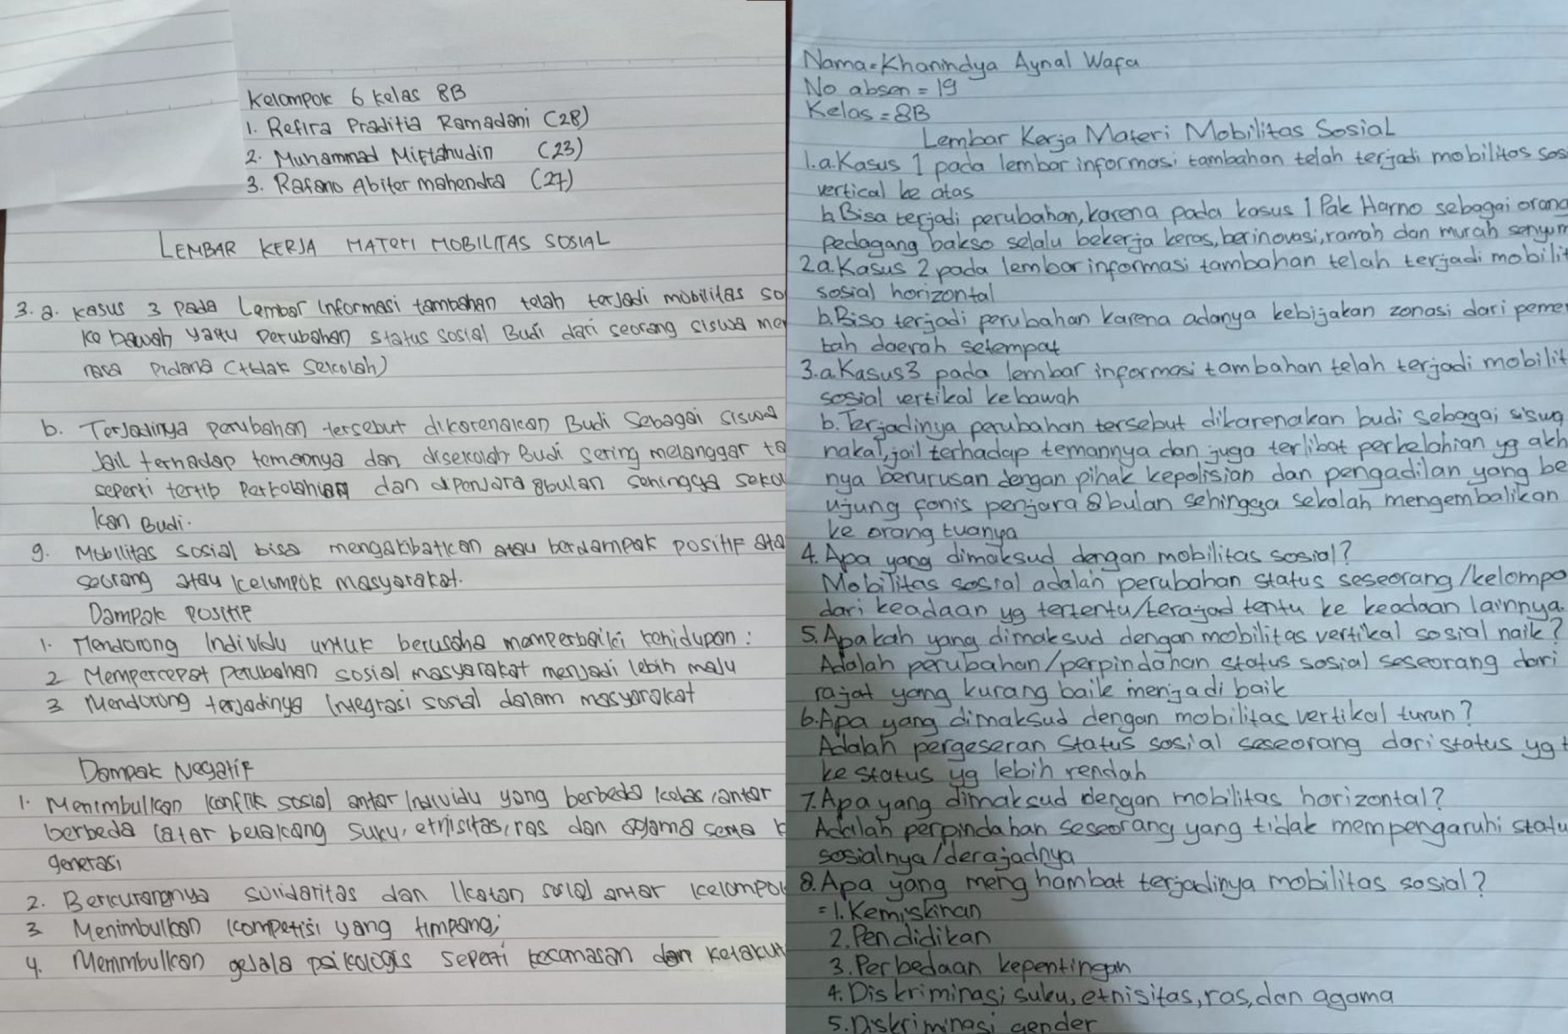 Kelompok 6 kelas 8B
1. Refira Praditia Ramadani (28)
2. Muhammad Miftahudin (23)
3. Rafano Abifer mahendra (27)
LEMBAR KERJA MATERI MOBILITAS SOSIAL
3. a. kasus 3 pada Lembar Informasi tambahan telah terjadi mobilitas so
ke bawah yaitu Perubahan status sosial Budi dari seorang siswa me
rasa Pidana (tidak sekolah)
b. Terjadinya perubahan tersebut dikarenakan Budi Sebagai siswa
Jail terhadap temannya dan disekolah Budi sering melanggar ta
seperti tertib Perkelahian dan dipenjara 8bulan sehingga sekol
kan Budi.
9. Mobilitas sosial bisa mengakibatkan atau berdampak positif ata
seorang atau kelompok masyarakat.
Dampak Positif
1. Mendorong Individu untuk berusaha memperbaiki kehidupan:
2 Mempercepat perubahan sosial masyarakat menjadi lebih maju
3 Mendorong terjadinya Integrasi sosial dalam masyarakat
Dampak Negatif
1. Menimbulkan konflik sosial antar Individu yang berbeda kelas, antar
berbeda latar belakang suku, etnisitas, ras dan agama serta
generasi
2. Berkurangnya solidaritas dan Ikatan sosial antar kelompok
3 Menimbulkan kompetisi yang timpang;
4. Menimbulkan gejala psikologis seperti kecemasan dan ketakut
Nama=Khanindya Aynal Wafa
No absen = 19
Kelas = 8B
Lembar Kerja Materi Mobilitas Sosial
1.a.Kasus 1 pada lembar informasi tambahan telah terjadi mobilitas sos
vertical ke atas
b.Bisa terjadi perubahan, karena pada kasus 1 Pak Harno sebagai orang
pedagang bakso selalu bekerja keras, berinovasi, ramah dan murah senyum
2a.Kasus 2 pada lembar informasi tambahan telah terjadi mobilit
sosial horizontal
b.Bisa terjadi perubahan karena adanya kebijakan zonasi dari pemer
tah daerah setempat
3.a.Kasus3 pada lembar informasi tambahan telah terjadi mobilit
sosial vertikal kebawah
b.Terjadinya perubahan tersebut dikarenakan budi sebagai siswa
nakal,jail terhadap temannya dan juga terlibat perkelahian yg akh
nya berurusan dengan pihak kepolisian dan pengadilan yang be
ujung fonis penjara 8 bulan sehingga sekolah mengembalikan
ke orang tuanya
4.Apa yang dimaksud dengan mobilitas sosial?
Mobilitas sosial adalah perubahan status seseorang/kelompo
dari keadaan yg tertentu/terajad tentu ke keadaan lainnya
5.Apakah yang dimaksud dengan mobilitas vertikal sosial naik?
Adalah perubahan/perpindahan status sosial seseorang dari
rajat yang kurang baik menjadi baik
6.Apa yang dimaksud dengan mobilitas vertikal turun?
Adalah pergeseran status sosial seseorang dari status yg t
ke status yg lebih rendah
7.Apa yang dimaksud dengan mobilitas horizontal?
Adalah perpindahan seseorang yang tidak mempengaruhi statu
sosialnya/derajadnya
8.Apa yang menghambat terjadinya mobilitas sosial?
=1.Kemiskinan
2.Pendidikan
3.Perbedaan kepentingan
4.Diskriminasi suku, etnisitas, ras, dan agama
5.Diskriminasi gender